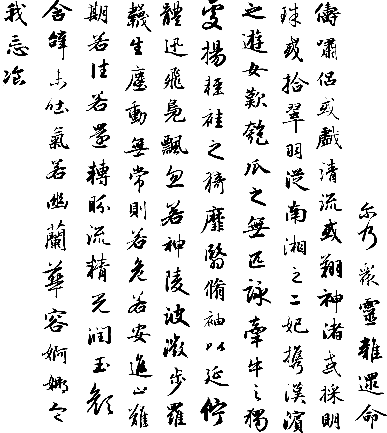 尔乃衆靈雜遝命
儔嘯侶或戲清流或翔神渚或採明
珠或拾翠羽從南湘之二妃攜漢濱
之遊女歎匏瓜之無匹詠牽牛之獨
處揚輕袿之猗靡翳脩袖以延佇
體迅飛鳧飄忽若神陵波微步羅
襪生塵動無常則若危若安進止難
期若往若還轉眄流精光潤玉顏
含辭未吐氣若幽蘭華容婀娜令
我忘飡